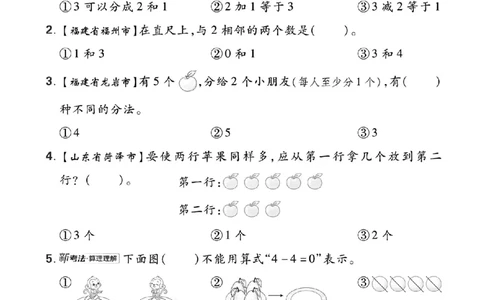 ①3 可以分成 2 和 1 ②2 加 1 等于 3 ③3 减 2 等于 1
2.【福建省福州市】在直尺上,与 2 相邻的两个数是( )。
①1 和 3 ②0 和 1 ③3 和 4
3.【福建省龙岩市】有 5 个 ,分给 2 个小朋友(每人至少分 1 个),有( )
种不同的分法。
①4 ②5 ③3
4.【山东省菏泽市】要使两行苹果同样多,应从第一行拿几个放到第二
行?( )。 第一行:
第二行:
①3 个 ②1 个 ③2 个
5. 新考法·算理理解 下面图( )不能用算式“4-4=0”表示。
① ② ③